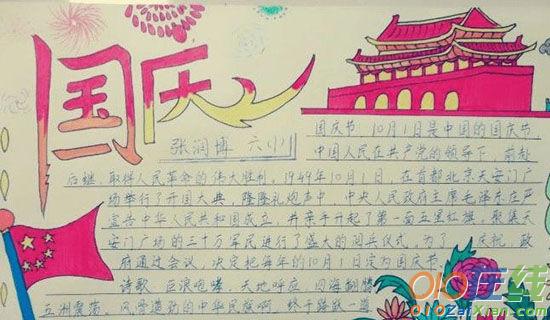 国庆
张润博 六(1)
国庆节 10月1日是中国的国庆节,
中国人民在共产党的领导下,前赴
后继,取得人民革命的伟大胜利,1949年10月1日,在首都北京天安门广
场举行了开国大典,隆隆礼炮声中,中央人民政府主席毛泽东庄严
宣告中华人民共和国成立,并亲手升起了第一面五星红旗,聚集天
安门广场的三十万军民进行了盛大的阅兵仪式,为了庆祝,政
府通过会议,决定把每年的10月1日定为国庆节。
诗歌 巨浪咆哮,天地呼应,四海翻腾
五洲震荡,风雪道劲的中华民族啊 终于
OIO在线
OIOZaiXian.com